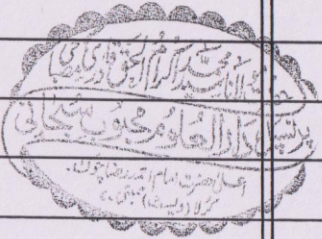 محمد اکرام الحق قادری مصباحی
پرنسپل دارالعلوم محبوب سبحانی
اعلیٰ حضرت امام احمد رضا چوک،
کرلا (ویسٹ) ممبئی۔